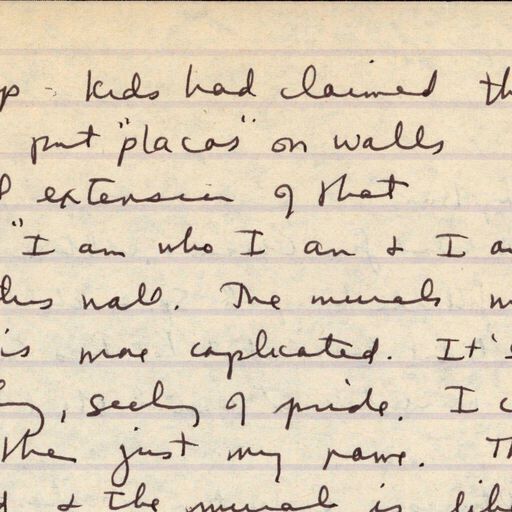 p - kids had claimed th
put "placas" on walls
extension of that
"I am who I am & I a
this wall. The murals m
is more complicated. It's
, seeking of pride. I c
then just my name. Th
& the mural is lik